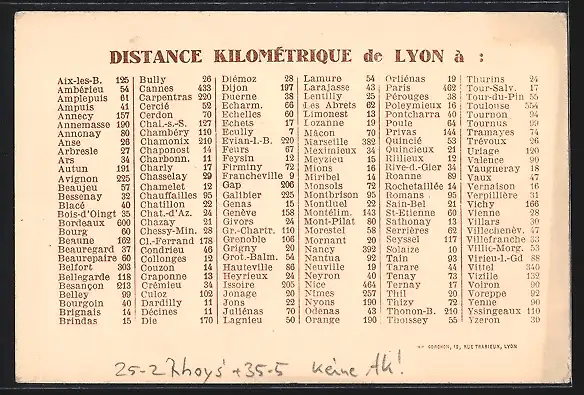 DISTANCE KILOMÉTRIQUE de LYON à :
Aix-les-B. 125
Ambérieu 54
Amplepuis 61
Ampuis 41
Annecy 157
Annemasse 190
Annonay 80
Anse 26
Arbresle 27
Ars 34
Autun 191
Avignon 225
Beaujeu 57
Bessenay 32
Blacé 40
Bois-d'Oingt 35
Bordeaux 600
Bourg 60
Beaune 162
Beauregard 37
Beaurepaire 60
Belfort 303
Bellegarde 118
Besançon 213
Belley 99
Bourgoin 40
Brignais 14
Brindas 15
Bully 26
Cannes 433
Carpentras 220
Cercié 52
Cerdon 70
Chal.-s.-S. 127
Chambéry 110
Chamonix 210
Chaponost 14
Charbonn. 11
Charly 17
Chasselay 29
Chamelet 12
Chauffailles 95
Chatillon 22
Chat.-d'Az. 24
Chazay 21
Chessy-Min. 28
Cl.-Ferrand 178
Condrieu 46
Collonges 12
Couzon 14
Craponne 13
Crémieu 34
Culoz 102
Dardilly 11
Décines 11
Die 170
Diémoz 28
Dijon 197
Duerne 38
Echarm. 66
Echelles 60
Echets 17
Ecully 7
Evian-l.-B. 220
Feurs 67
Feysin 12
Firminy 72
Francheville 9
Gap 206
Galibier 225
Genas 15
Genève 158
Givors 24
Gr.-Chartr. 110
Grenoble 106
Grigny 20
Grot.-Balm. 54
Hauteville 86
Heyrieux 24
Issoire 205
Jonage 20
Jons 22
Juliénas 70
Lagnieu 50
Lamure 54
Larajasse 43
Lentilly 25
Les Abrets 62
Limonest 13
Lozanne 19
Mâcon 70
Marseille 382
Meximieux 34
Meyzieu 15
Mions 16
Miribel 14
Monsols 72
Montbrison 95
Montluel 22
Montélim. 143
Mont-Pilat 80
Morestel 58
Mornant 20
Nancy 392
Nantua 92
Neuville 19
Neyron 40
Nice 464
Nîmes 257
Nyons 190
Odenas 43
Orange 190
Orliénas 19
Paris 462
Pérouges 38
Poleymieux 16
Pontcharra 40
Poule 64
Privas 144
Quincié 53
Quincieux 21
Rillieux 12
Rive-d.-Gier 34
Roanne 89
Rochetaillée 14
Romans 95
Sain-Bel 21
St-Etienne 60
Sathonay 13
Serrières 62
Seyssel 117
Solaize 10
Tain 93
Tarare 44
Tenay 73
Ternand 17
Thil 20
Thizy 72
Thonon-B. 210
Thoissey 55
Thurins 24
Tour-Salv. 17
Tour-du-Pin 55
Toulouse 554
Tournon 94
Tournus 99
Tramayes 74
Trévoux 26
Uriage 120
Valence 90
Vaugneray 18
Vaux 47
Vernaison 16
Verpillière 31
Vichy 166
Vienne 28
Villars 30
Villechenèv. 47
Villefranche 33
Villié-Morg. 53
Virieu-l.-Gd 88
Vittel 340
Vizille 132
Voiron 90
Voreppe 92
Yenne 90
Yssingeaux 110
Yzeron 30
GONGHON, 10, RUE TRARIEUX, LYON
keine AK!